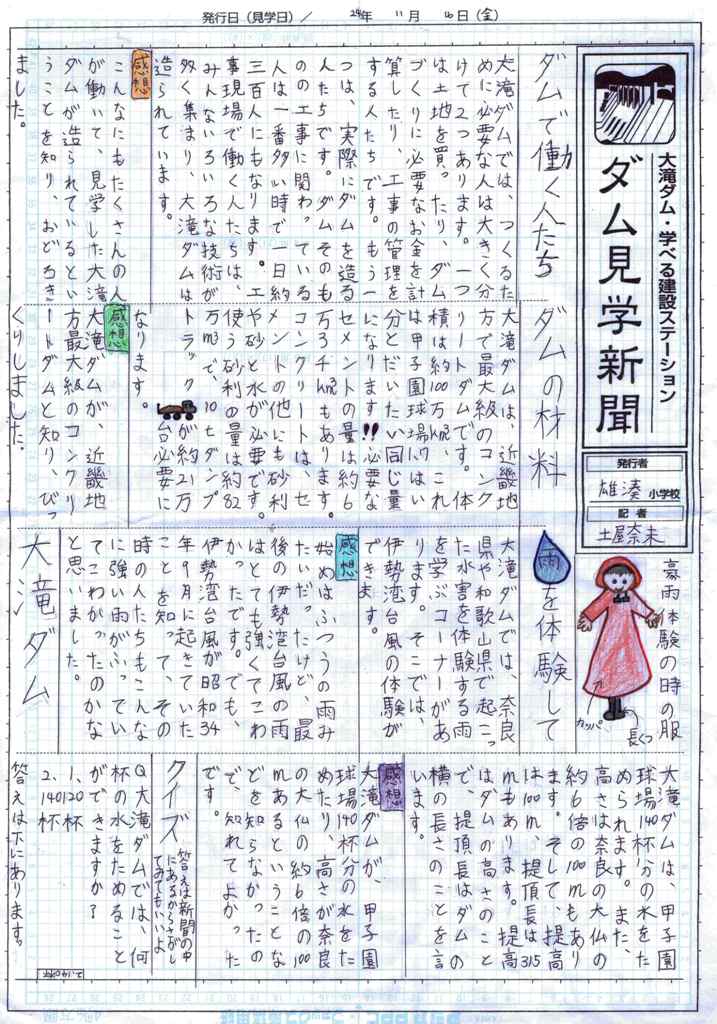 発行日(見学日)/ 24年 11月 16日(金)
大滝ダム・学べる建設ステーション
ダム見学新聞
発行者
雄湊 小学校
記者
土屋奈未
ダムで働く人たち
大滝ダムでは、つくるた
めに必要な人は大きく分
けて2つあります。一つ
は土地を買ったり、ダム
づくりに必要なお金を計
算したり、工事の管理を
する人たちです。もう一
つは、実際にダムを造る
人たちです。ダムそのも
のの工事に関わっている
人は一番多い時で一日約
三百人にもなります。工
事現場で働く人たちは、
みんないろいろな技術が
多く集まり、大滝ダムは
造られています。
感想
こんなにもたくさんの人
が働いて、見学した大滝
ダムが造られているとい
うことを知り、おどろき
ました。
ダムの材料
大滝ダムは、近畿地
方で最大級のコンク
リートダムです。体
積は約100万m3、これ
は甲子園球場にはい
分とだいたい同じ量
になります!!必要な
セメントの量は約6
万3千m3もあります。
コンクリートは、セ
メントの他にも砂利
や砂と水が必要です。
使う砂利の量は約82
万m3で、10tダンプ
トラックが約21万
台必要に
なります。
感想
大滝ダムが、近畿地
方最大級のコンクリ
ートダムと知り、びっ
くりしました。
雨を体験して
豪雨体験の時の服
カッパ
長ぐつ
大滝ダムでは、奈良
県や和歌山県で起こっ
た水害を体験する雨
を学ぶコーナーがあ
ります。そこでは、
伊勢湾台風の体験が
できます。
感想
始めはふつうの雨み
たいだったけど、最
後の伊勢湾台風の雨
はとても強くてこわ
かったです。でも、
伊勢湾台風が昭和34
年9月に起きていた
ことを知って、その
時の人たちもこんな
に強い雨がふってい
てこわかったのかな
と思いました。
大滝ダム
大滝ダムは、甲子園
球場140杯分の水をた
められます。また、
高さは奈良の大仏の
約6倍の100mもあり
ます。そして、堤高
は100m、堤頂長は315
mもあります。堤高
はダムの高さのこと
で、堤頂長はダムの
横の長さのことを言
います。
感想
大滝ダムが、甲子園
球場140杯分の水をた
めたり、高さが奈良
の大仏の約6倍の100
mあるということな
どを知らなかったの
で、知れてよかった
です。
クイズ
答えは新聞の中
にあるからさがし
てみてもいいよ
Q大滝ダムでは、何
杯の水をためること
ができますか?
1、120杯
2、140杯
答えは下にあります。
2、140杯